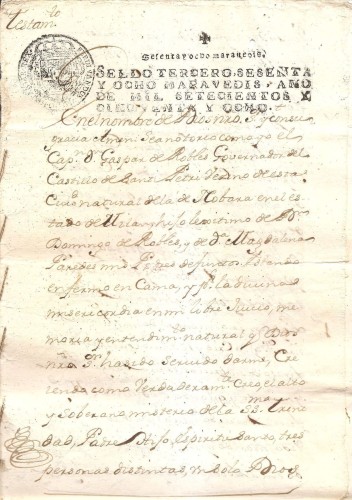 Testam.to
Sesenta y ocho marauedis.
SELLO TERCERO, SESENTA
Y OCHO MARAVEDIS, AÑO
DE MIL SETECIENTOS Y
CINCUENTA Y OCHO.
En el nombre de Dios N.ro S.r y con su
gracia Amen: Sea notorio como yo el
Cap.n D. Gaspar de Robles Governador del
Castillo de Santi Petri Vezino de esta
Ciu.d natural de la de
estado de hijo lexitimo de D.n
Domingo de Robles, y de D.a Magdalena
Paredes mis P.dres difuntos: Estando
enfermo en Cama, y p.r la divina
misericordia en mi libre Juicio, me
moria, y entendim.to natural q Dios
N.ro S.r ha sido servido darme, Cre
iendo como Verdaderam.te Creo, el alto
y Soberano misterio de la SS.ma Trini
dad, Padre, Hijo, Espiritu Santo, tres
personas distintas, un solo Dios